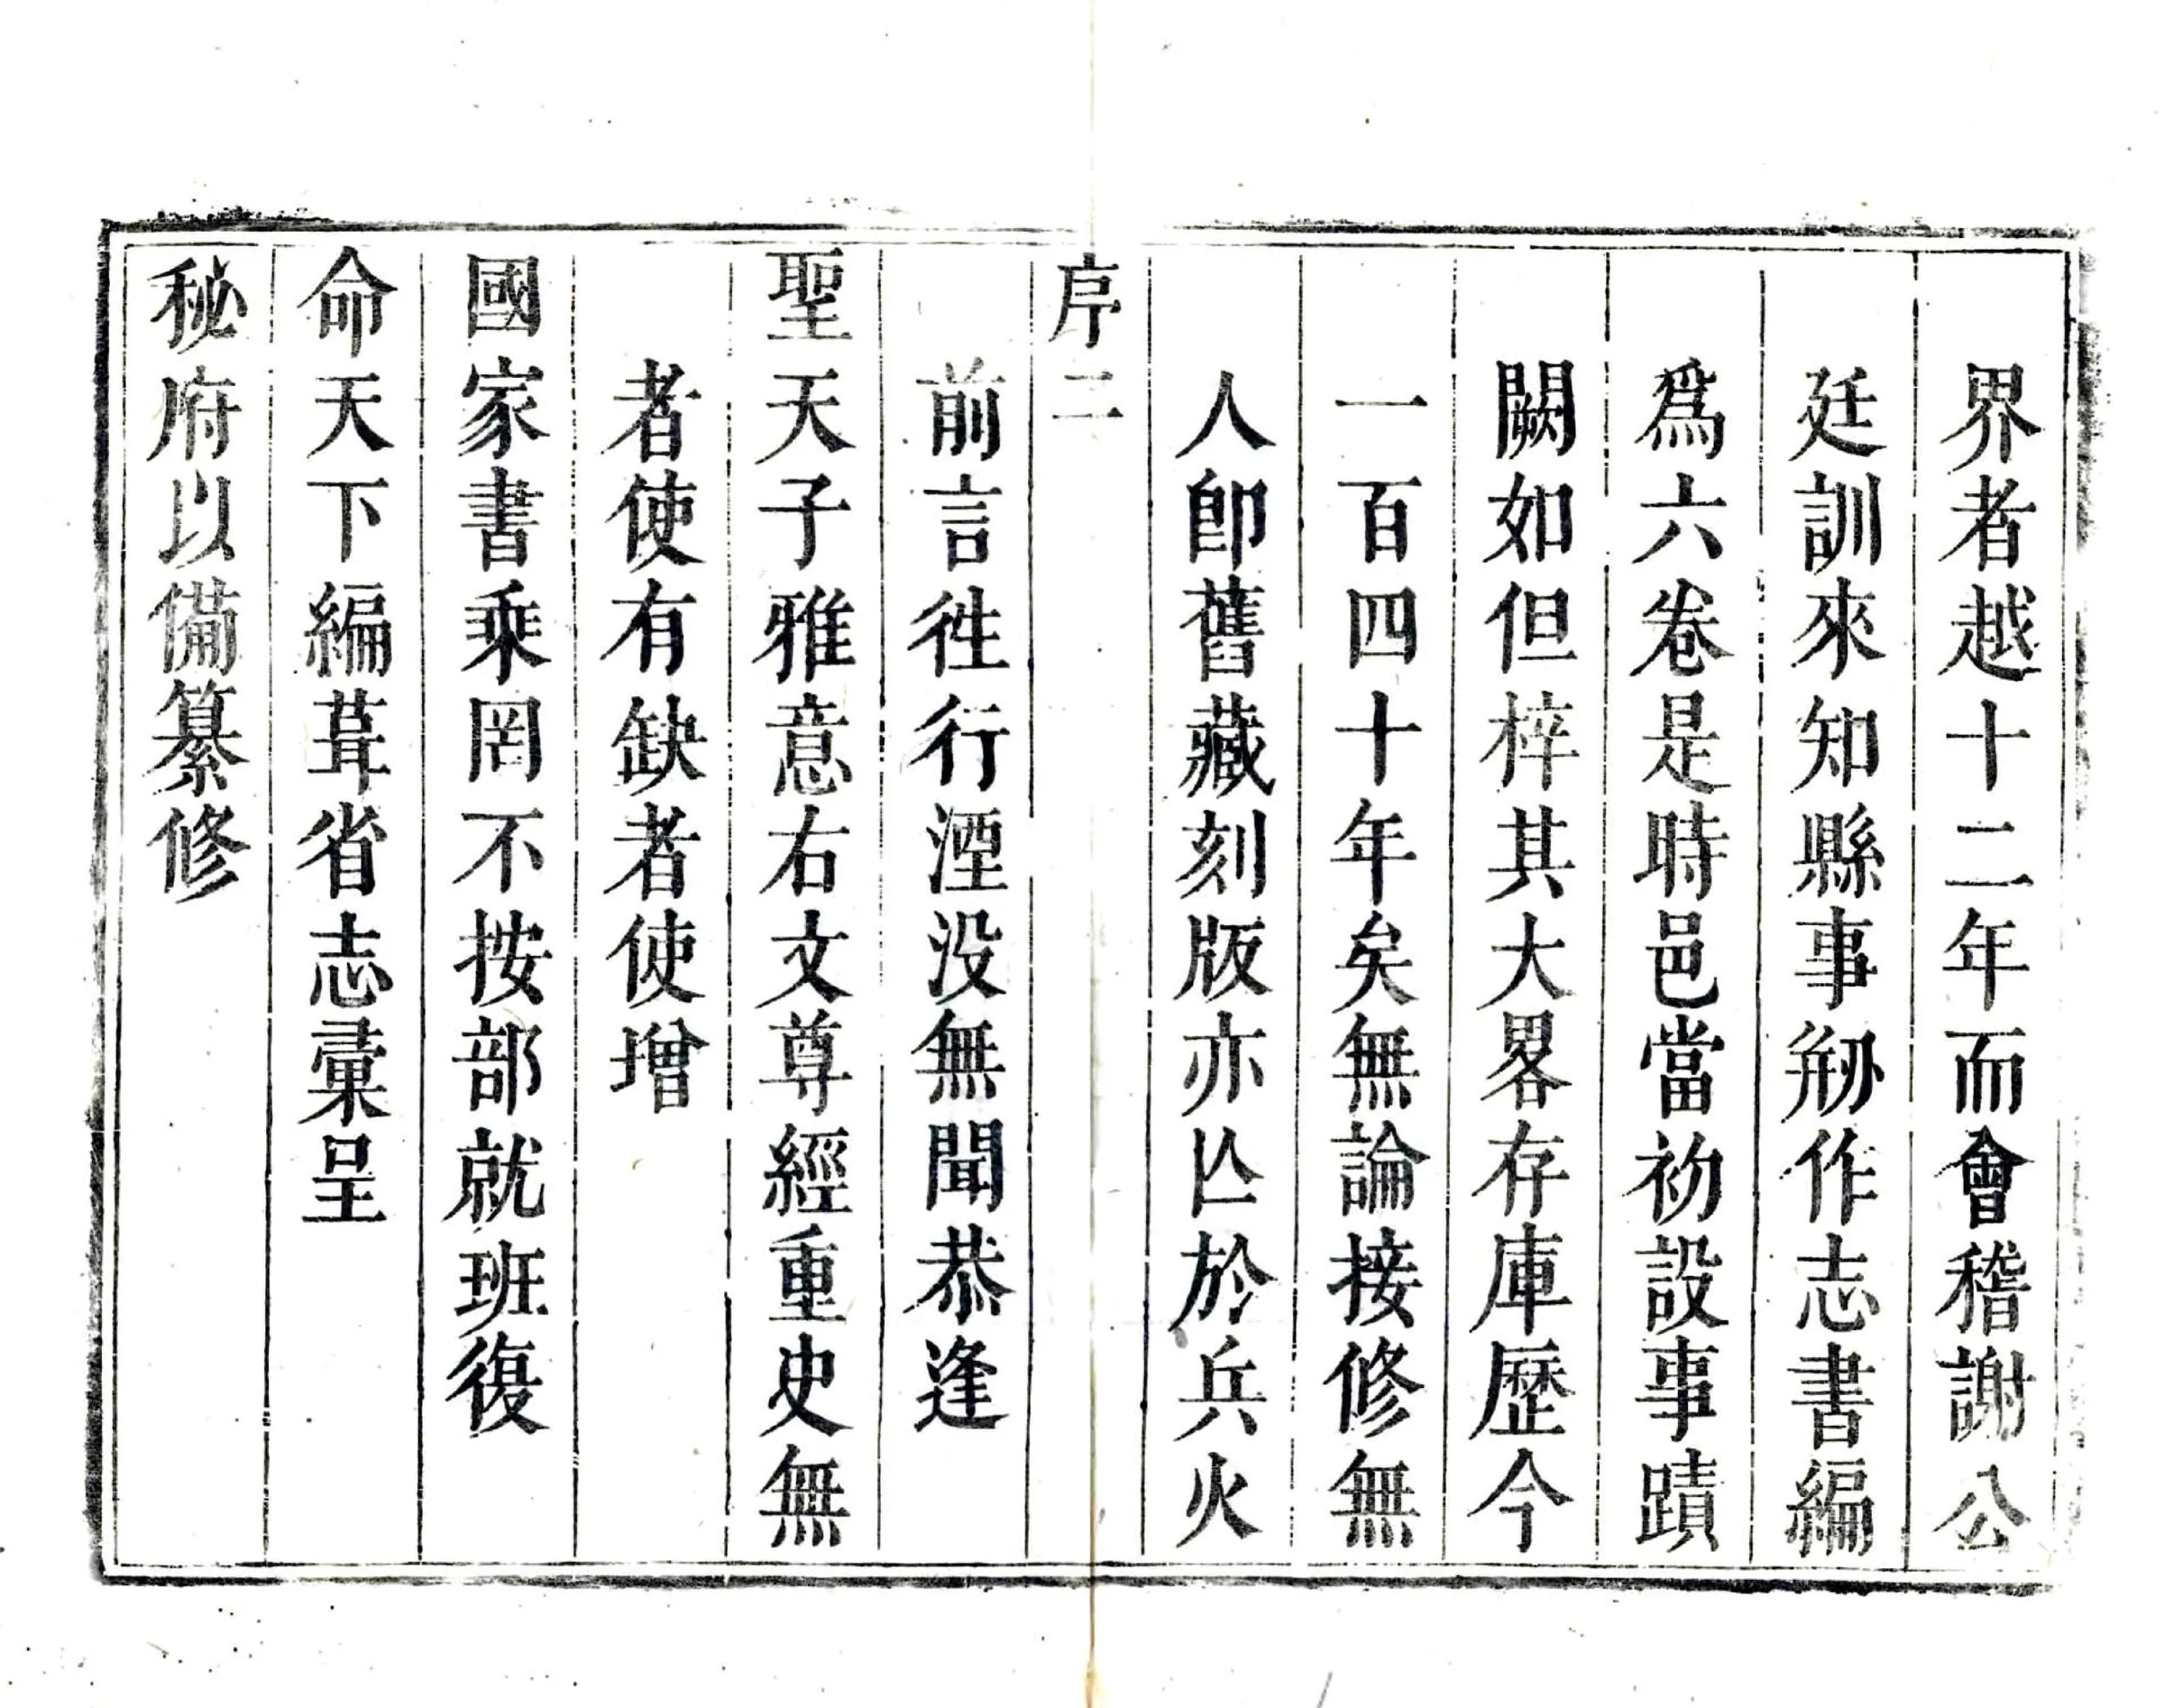 界者越十二年而會稽謝公
廷訓來知縣事剏作志書編
爲六卷是時邑當初設事蹟
闕如但梓其大畧存庫歷今
一百四十年矣無論接修無
人卽舊藏刻版亦亾於兵火
序二
前言徃行湮没無聞恭逢
聖天子雅意右文尊經重史無
者使有缺者使增
國家書乘罔不按部就班復
命天下編葺省志彙呈
秘府以備纂修